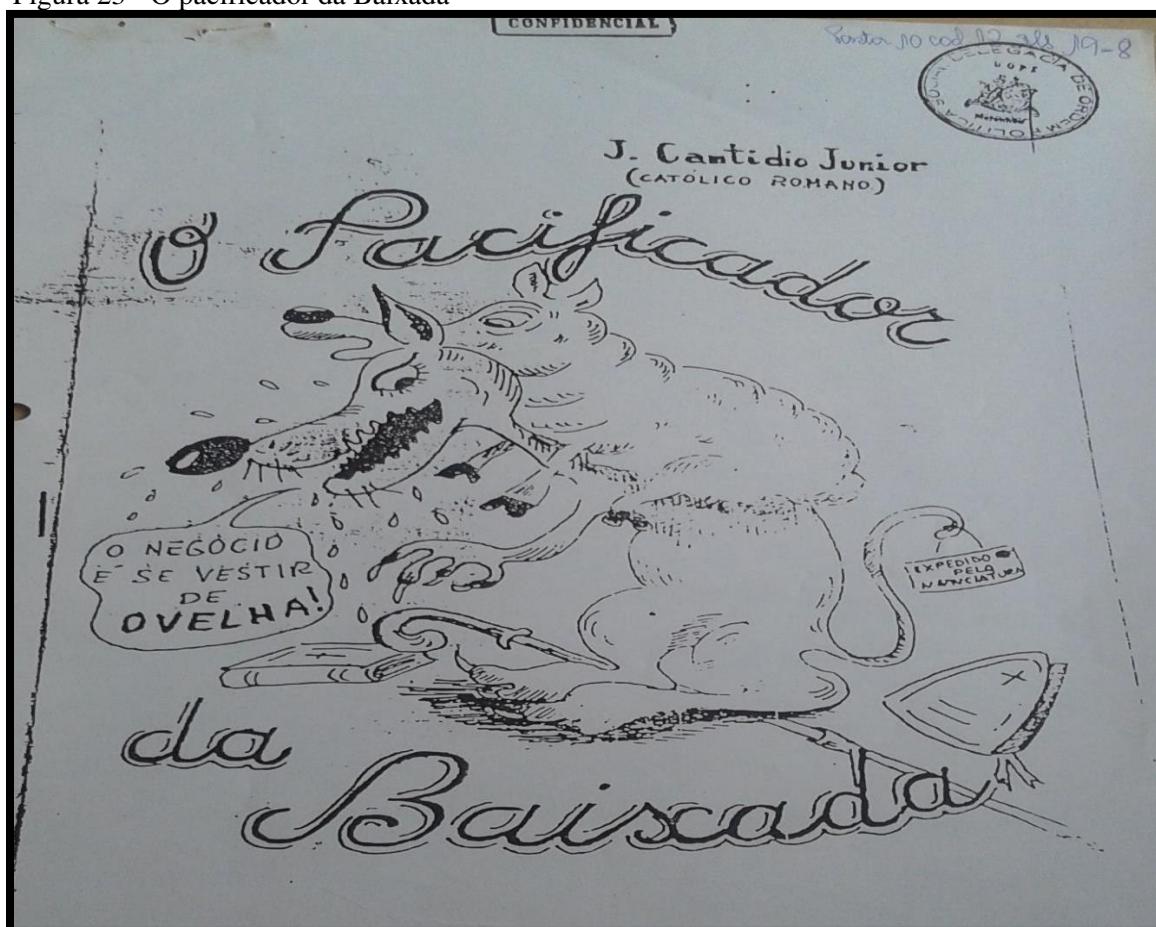 Figura 25 - O pacificador da Baixada
CONFIDENCIAL
10 cod 12 19-8
DELEGACIA DE ORDEM POLITICA
J. Cantidio Junior
(CATÓLICO ROMANO)
O Pacificador
O NEGÓCIO
É SE VESTIR
DE
OVELHA!
EXPEDIDO
PELA
NUNCIATURA
da
Baixada